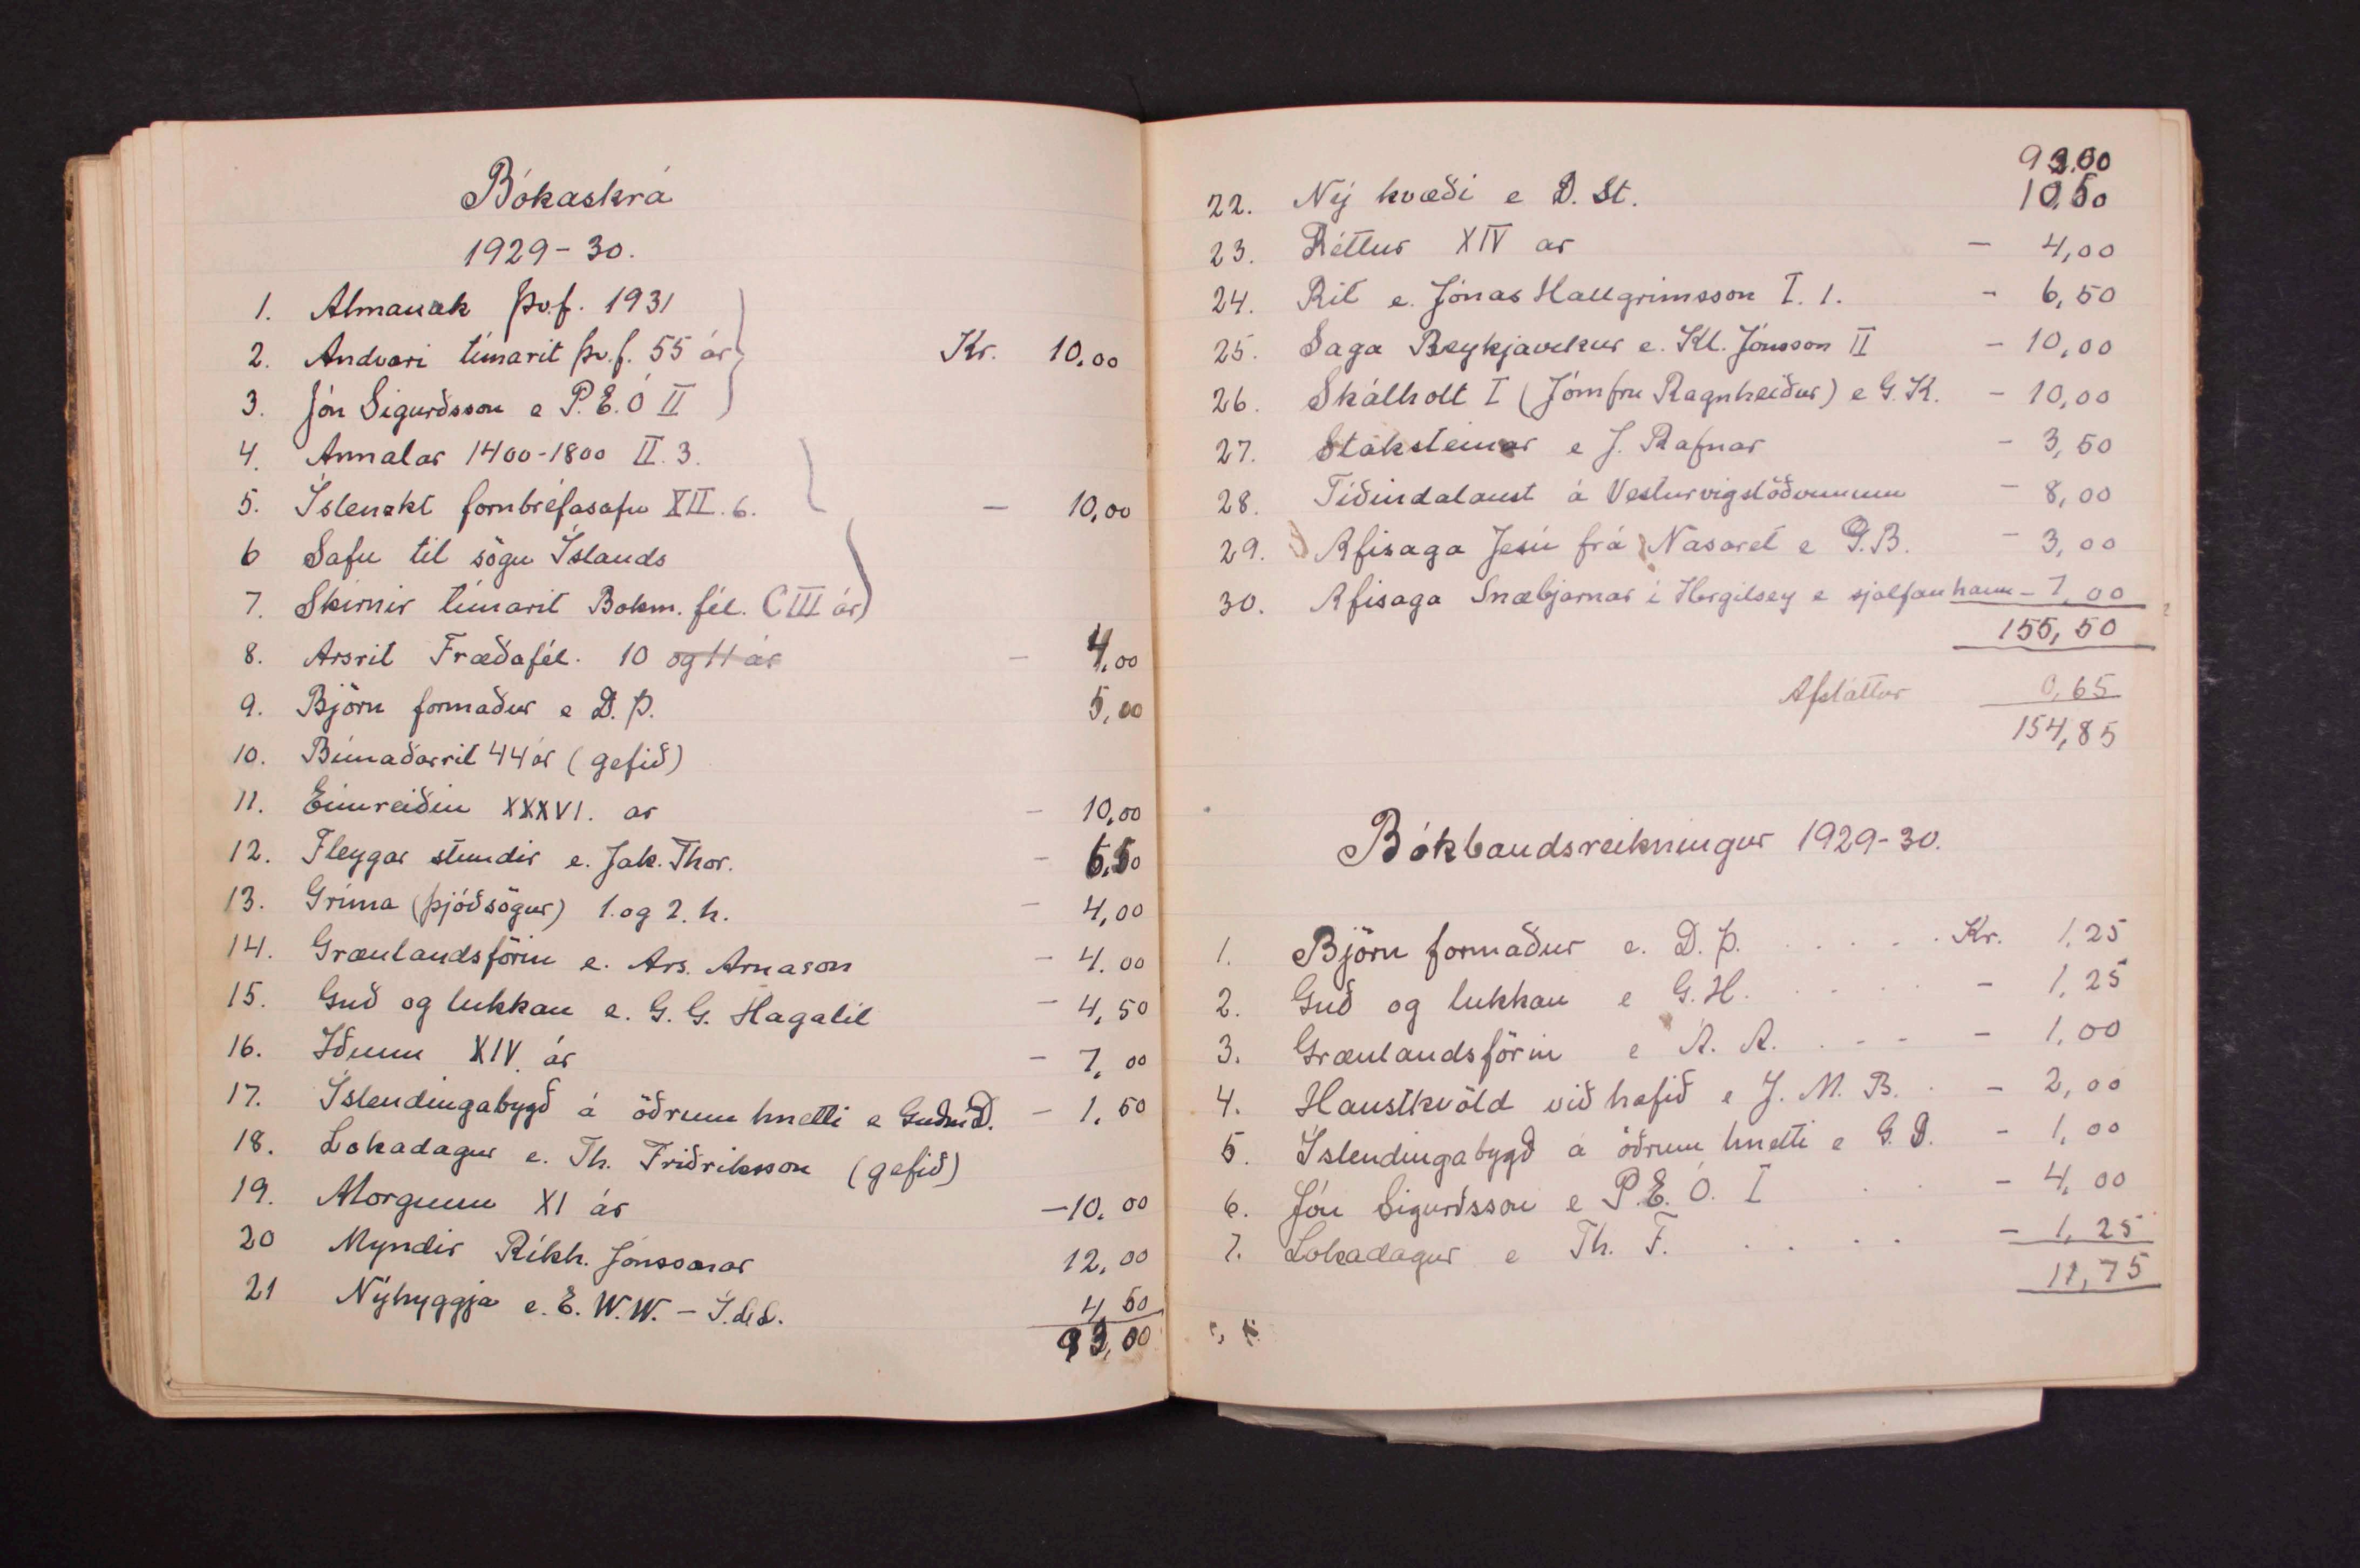 Bókaskrá
1929-30.
1. Almanak þv.f. 1931
2. Andvari tímarit þv.f. 55 ár Kr. 10,00
3. Jón Sigurðsson e P.E.Ó II
4. Annalar 1400-1800 II.3.
5. Íslenzkt fornbréfasafn XII.6. - 10,00
6 Safn til sögu Íslands
7. Skírnir tímarit Bokm. fél. CIII ár
8. Arsrit Fræðafél. 10 og 11 ár - 4,00
9. Björn formaður e D.Þ. 5,00
10. Búnaðarrit 44 ár (gefið)
11. Eimreiðin XXXVI. ar - 10,00
12. Fleygar stundir e. Jak. Thor. - 6,50
13. Gríma (þjóðsögur) 1. og 2. h. - 4,00
14. Grænlandsförin e. Ars. Arnason - 4.00
15. Guð og lukkan e. G.G. Hagalil - 4,50
16. Iðunn XIV. ár - 7,00
17. Íslendingabygð á öðrum hnetti e Guðm D. - 1.50
18. Lokadagur e. Th. Friðriksson (gefið)
19. Morgunn XI ár - 10.00
20 Myndir Ríkh. Jónssonar 12,00
21 Nýhyggja e. E.W.W. - Í.d.L. 4,50
93,00
93,00
22. Ný kvæði e D. St. 10,50
23. Réttur XIV ar - 4,00
24. Rit e. Jónas Hallgrimsson I. 1. - 6,50
25. Saga Reykjavekur e. Kl. Jónsson II - 10,00
26. Skálholt I (Jómfru Ragnheiður) e G.K. - 10,00
27. Stáksteinar e J. Rafnar - 3,50
28. Tíðindalaust á Vesturvigstöðvunum - 8,00
29. Æfisaga Jesú frá Nasaret e G.B. - 3,00
30. Æfisaga Snæbjarnar í Hergilsey e sjalfan hann - 7,00
155,50
Afslattur 0,65
154,85
Bókbandsreikningur 1929-30.
1. Björn formaður e. D.Þ. . . . . . Kr. 1,25
2. Guð og lukkan e G.H. . . . . - 1,25
3. Grænlandsförin e Á. A. . - - - 1,00
4. Haustkvöld við hafið e J. M. B. . - 2,00
5. Íslendingabygð á öðrum hnetti e G.D. - 1,00
6. Jón Sigurðsson e P.E.Ó. I . . - 4,00
7. Lokadagur e Th. F. . . . . - 1,25
11,75